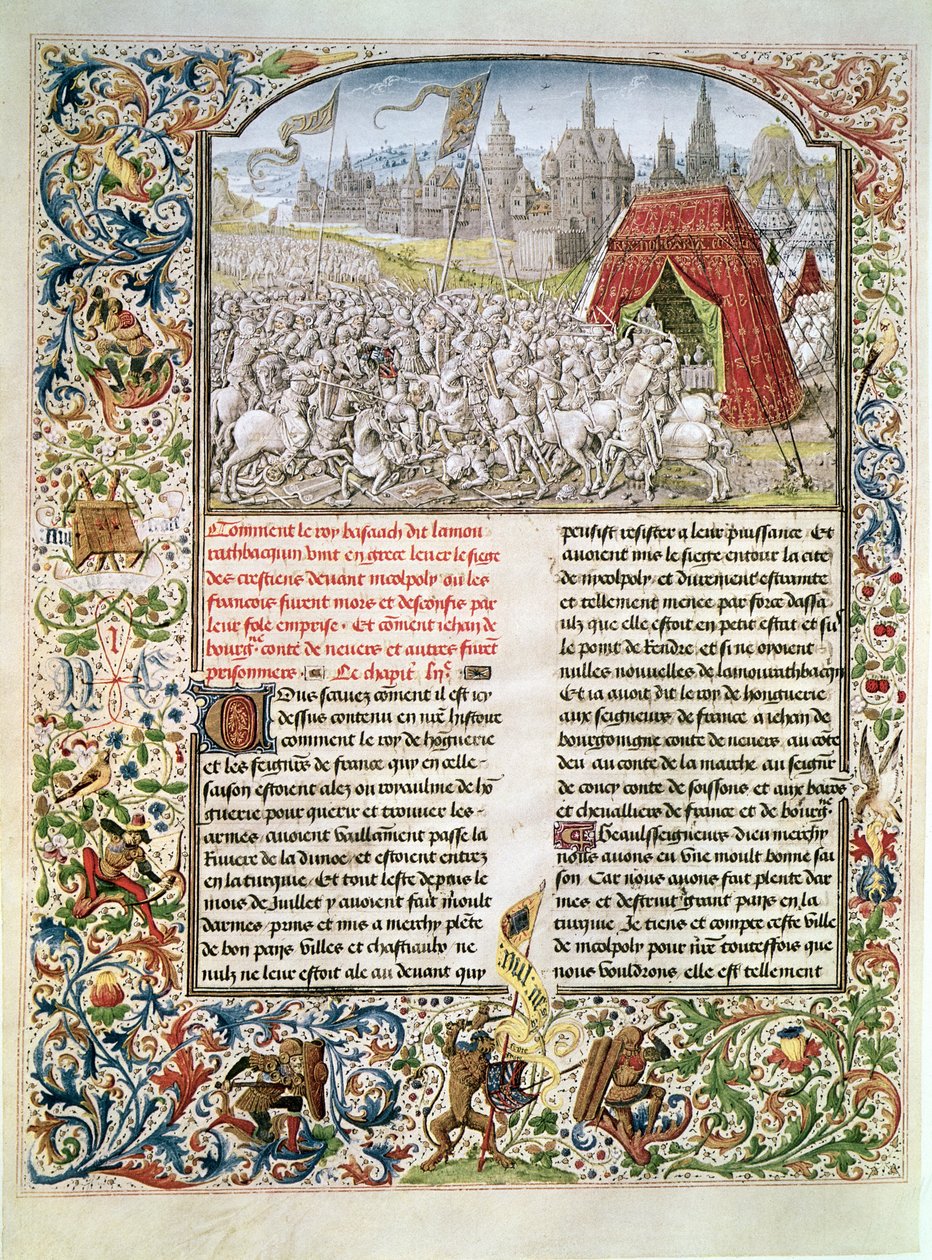 Comment le roy basaach dit lamou
rathbacquin vint en grece lever le siege
des crestiens devant nicolpoly ou les
francois furent mors et desconfis par
leur fole emprise. Et coment iehan de
bourgne conte de nevers et autres furet
prisonniers Ce chapit
Vous savez coment il est icy
dessus contenu en nre histoire
comment le roy de honguerie
et les seigners de france quy en celle
saison estoient alez ou royaulme de ho
guerie pour querir et trouver les
armes avoient vaillament passe la
Riviere de la dunoe et estoient entrez
en la turquie. Et tout leste depuis le
mois de Juillet y avoient fait moult
darmes prins et mis a merchy plete
de bon pays villes et chasteaulx ne
nulz ne leur estoit ale au devant quy
peusist resister a leur puissance. Et
avoient mis le siege entour la cite
de nicolpoly et durement estrainte
et tellement menee par force dassa
ulz que elle estoit en petit estat et sur
le point de Rendre et si ne oyoient
nulles nouvelles de lamourathbacqn
Et ia avoit dit le roy de honguerie
aux seigneurs de france a iehan de
bourgoingne conte de nevers, au cote
deu au conte de la marche au seignr
de coucy conte de soissons et aux baros
et chevalliers de france et de bourgne
Beaulx seigneurs dieu merchy
nous avons eu une moult bonne sai
son Car nous avons fait plente dar
mes et destruit grant pays en la
turquie. Je tiens et compte ceste ville
de nicolpoly pour nre touteffois que
nous vouldrons, elle est tellement
nul ne